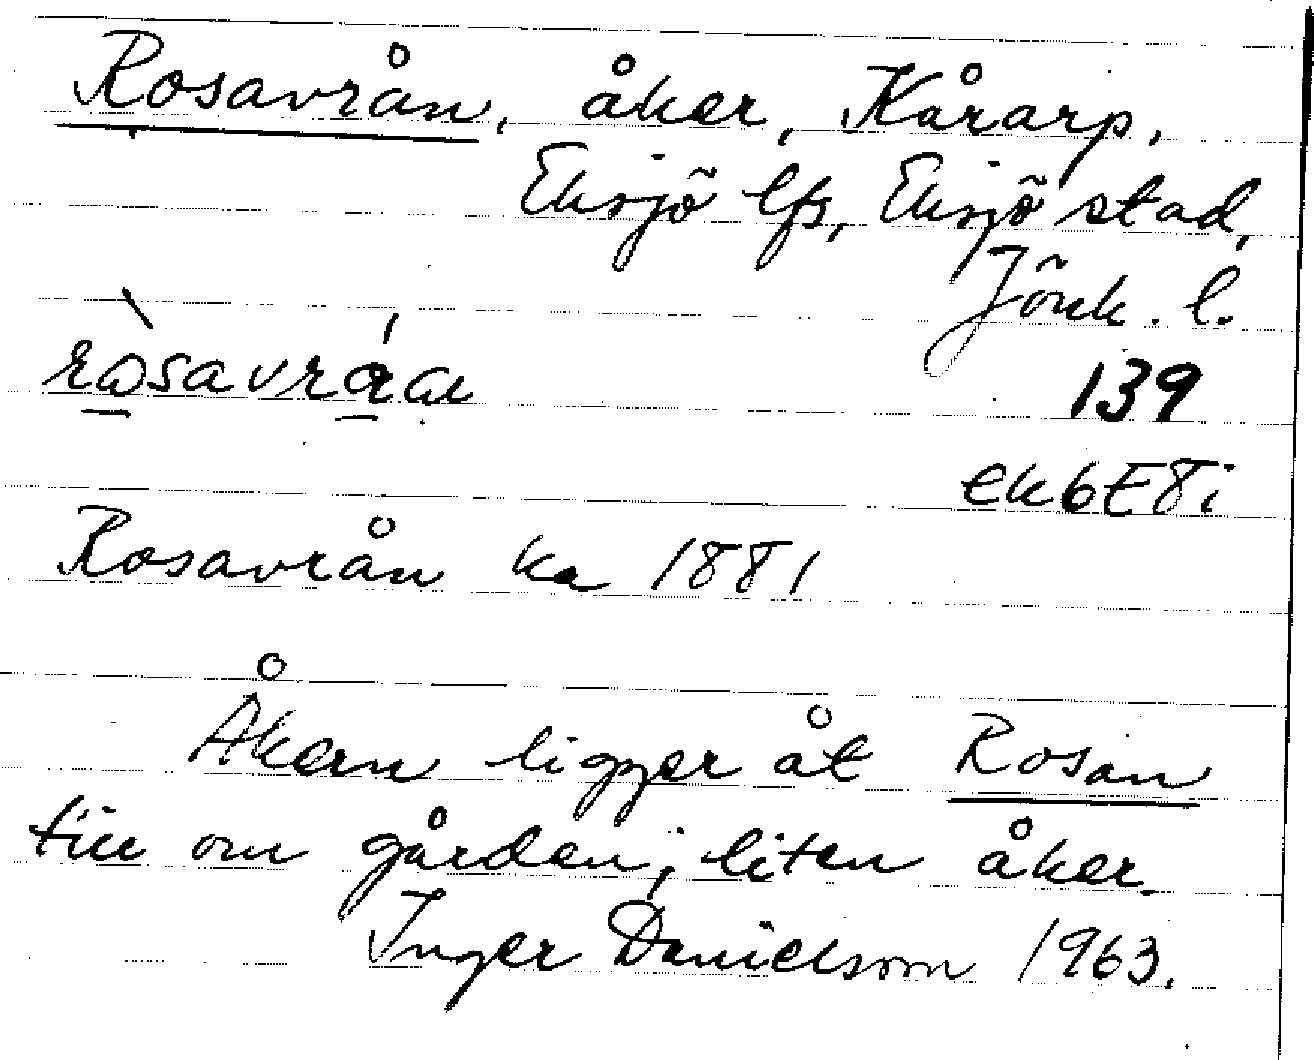 Rosavrån, åker, Kårarp,
Eksjö lfs, Eksjö stad,
Jönk. l.
139
ek6E8i
Rosavrån ka 1881
Åkern ligger åt Rosan
till om gården; liten åker.
Inger Danielsson 1963.